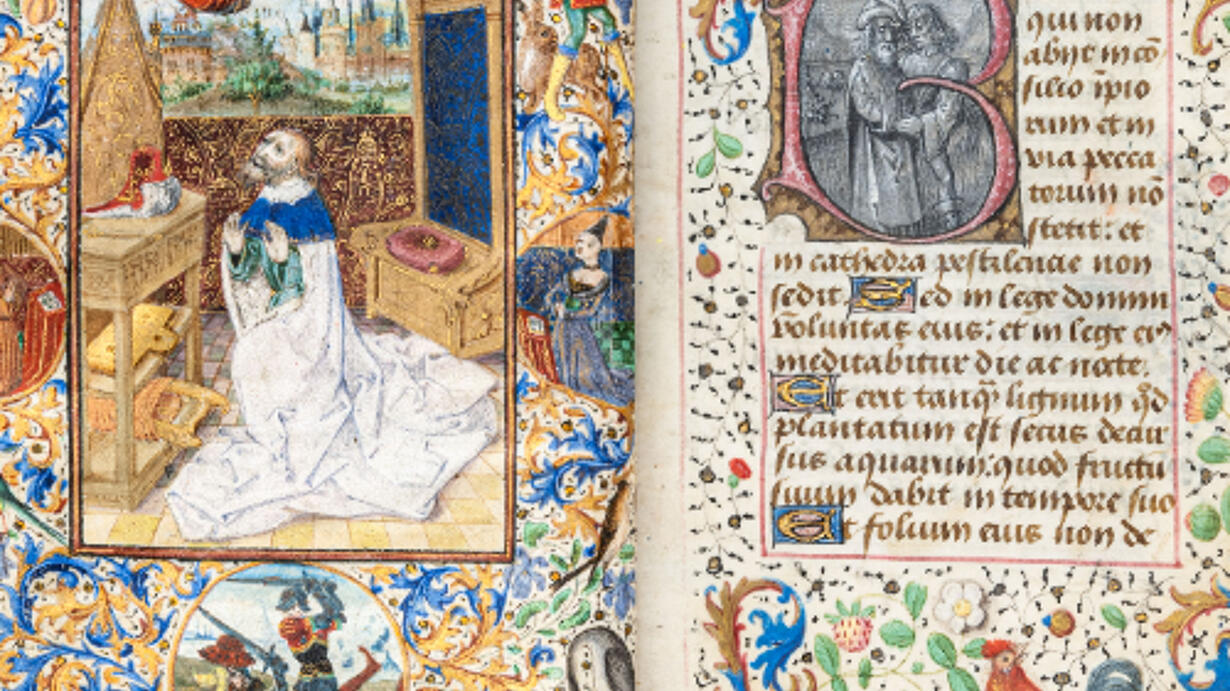 qui non
abijt in cō
silio īpio
rum et in
via pecca
torum nō
stetit: et
in cathedra pestilencie non
sedit Sed in lege domini
voluntas eius: et in lege ei9
meditabitur die ac nocte.
Et erit tanqȝ lignum qd
plantatum est secus decur
sus aquarum: quod fructū
suum dabit in tempore suo
Et folium eius non de